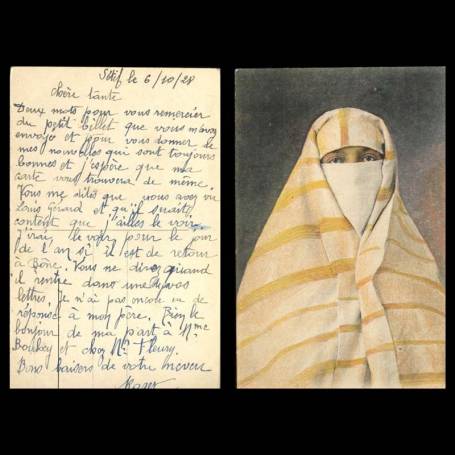 Sétif le 6/10/28
chère tante
Deux mots pour vous remercier
du petit billet que vous m'avez
envoyé et pour vous donner de
mes nouvelles qui sont toujours
bonnes et j'espère que ma
carte vous trouvera de même.
Vous me dites que vous avez vu
Louis Girard et qu'il serait
content que j'ailles le voir
J'irai le voir pour le jour
de l'an si il est de retour
à Bône. Vous me direz quand
il rentre dans une de vos
lettres. Je n'ai pas encore eu de
réponse à mon père. Bien le
bonjour de ma part à Mme
et chez Mr Fleury.
Bons baisers de votre neveu